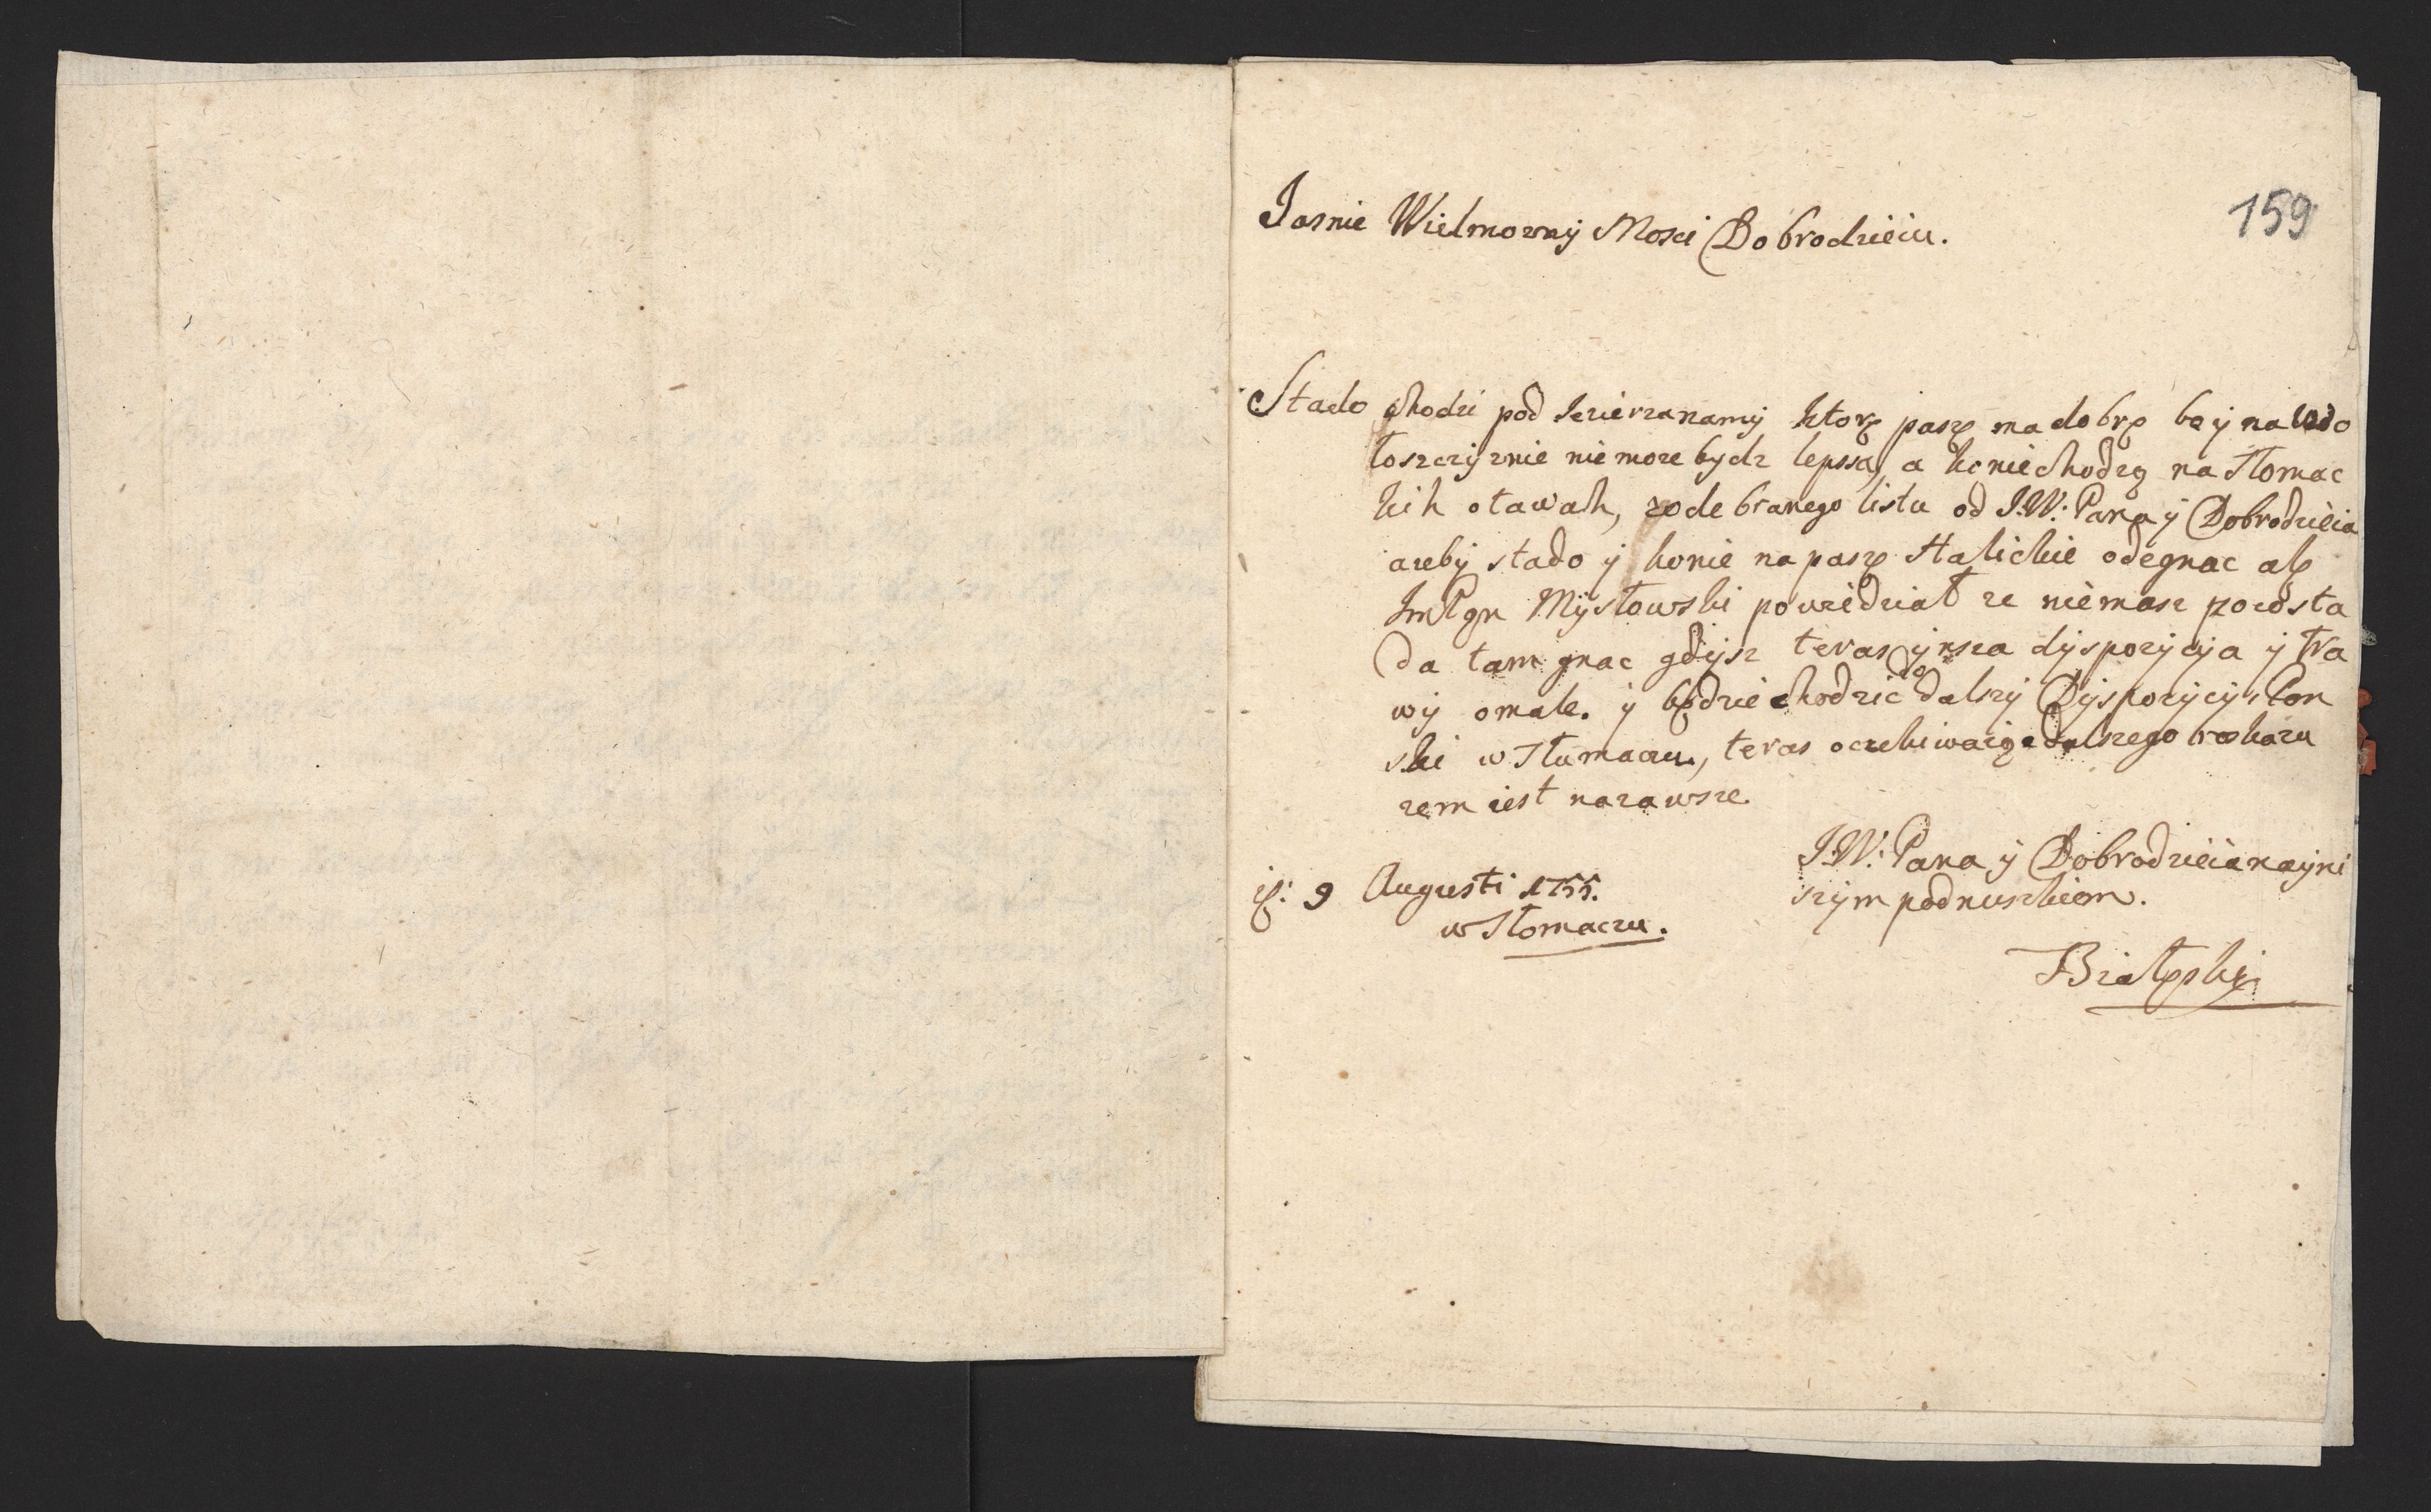 159
Jasnie Wielmozny Mosci Dobrodzieiu.
Stado chodzi pod Jezierzanamy ktorę paszę ma dobrę bo y na Wo
łoszczyznie nie moze bydz lepssa, a konie chodzą na Tłomac
kih otawah, zodebranego listu od J:W: Pana y Dobrodzieia
azeby stado y konie na paszę Halickie odegnac alę
ImPan Mysłowski powiedział ze niemasz poco sta
da tam gnac gdysz teras ynsza dyspozycyja y tra
wy omale. y będzie chodzic do dalszy Dyspozycyi Pan
ski w Tłumaczu, teras oczekiwaiąc dalszego roskazu
zem iest nazawsze.
J:W: Pana y Dobrodzieia nayni
szym podnuszkiem.
9 Augusti 1755.
w Tłomaczu.
Białęski